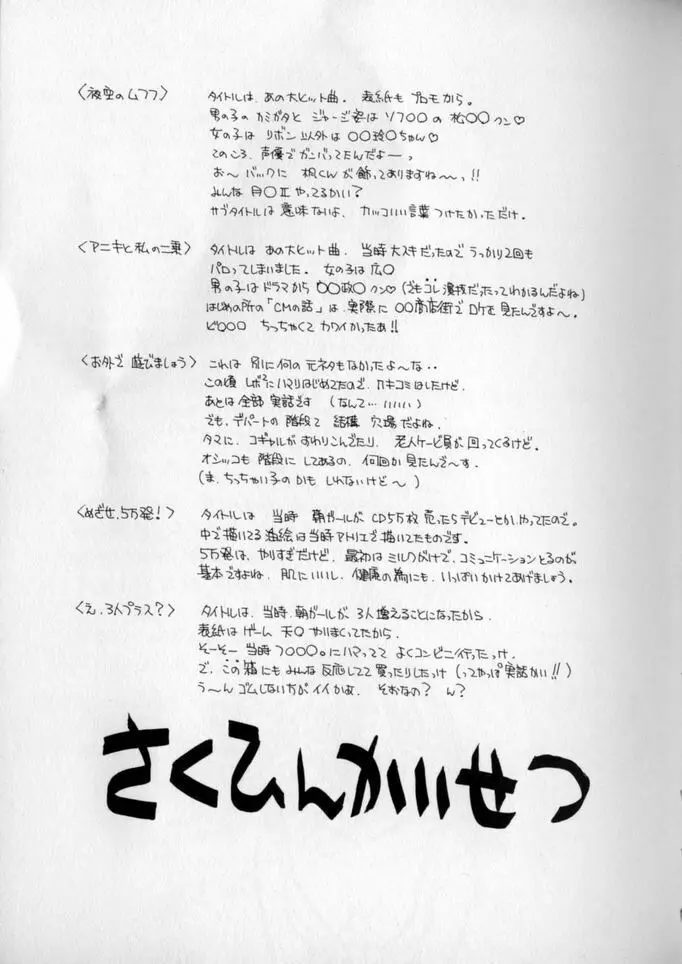 〈夜空のムフフ〉
タイトルは、あの大ヒット曲。表紙も プロモから。
男の子のカミガタと ジャージ姿は ソフ〇〇の 松〇〇クン♡
女の子は リボン以外は 〇〇玲〇ちゃん♡
このころ、声優でガンバってたんだよーっ
お〜 バックに 楓くんが 飾ってありますね〜っ!!
みんな 月〇Ⅱ やってるかい?
サブタイトルは 意味ないよ、カッコいい言葉 つけたかっただけ。
〈アニキと私の二乗〉
タイトルは あの大ヒット曲、当時 大スキだったので うっかり2回も
パロってしまいました。女の子は 広〇
男の子はドラマから 〇〇政〇クン♡(でもコレ 演技だったってわかるんだよね)
はじめの所の「CMの話」は、実際に 〇〇商店街で ロケを 見たんですよ〜。
ピ〇〇〇 ちっちゃくて カワイかったあ!!
〈お外で 遊びましょう〉
これは 別に何の 元ネタもなかったよーな・・
この頃 レボ²にハマりはじめてたので、カキコミはしたけど、
あとは 全部 実話です (なんて… いいいい)
でも、デパートの 階段て 結構 穴場だよね。
タマに、コギャルが すわりこんでたり、老人ケービ員が 回ってくるけど。
オシッコも 階段に してあるの、何回か 見たんで〜す。
(ま、ちっちゃい子の かも しれないけど〜)
〈めざせ、5万発!〉
タイトルは 当時 朝ガールが CD5万枚 売ったらデビューとか、やってたので。
中で描いてる 油絵は 当時アトリエで描いてたものです。
5万発は、やりすぎだけど、最初は ミルクがけで、コミュニケーションとるのが
基本ですよね、肌にいいし、健康の為にも、いっぱいかけてあげましょう。
〈え、3人プラス?〉
タイトルは、当時、朝ガールが、3人増えることになったから
表紙は ゲーム 天〇 やりまくってたから
そーそー 当時 フ〇〇〇。にハマってて よく コンビニ行ったっけ
で、この箱にも みんな 反応してて 買ったりしたっけ (ってやっぱ 実話かい!!)
う〜ん ゴムしない方が イイかぁ、そおなの? ん?
さくひんかいせつ